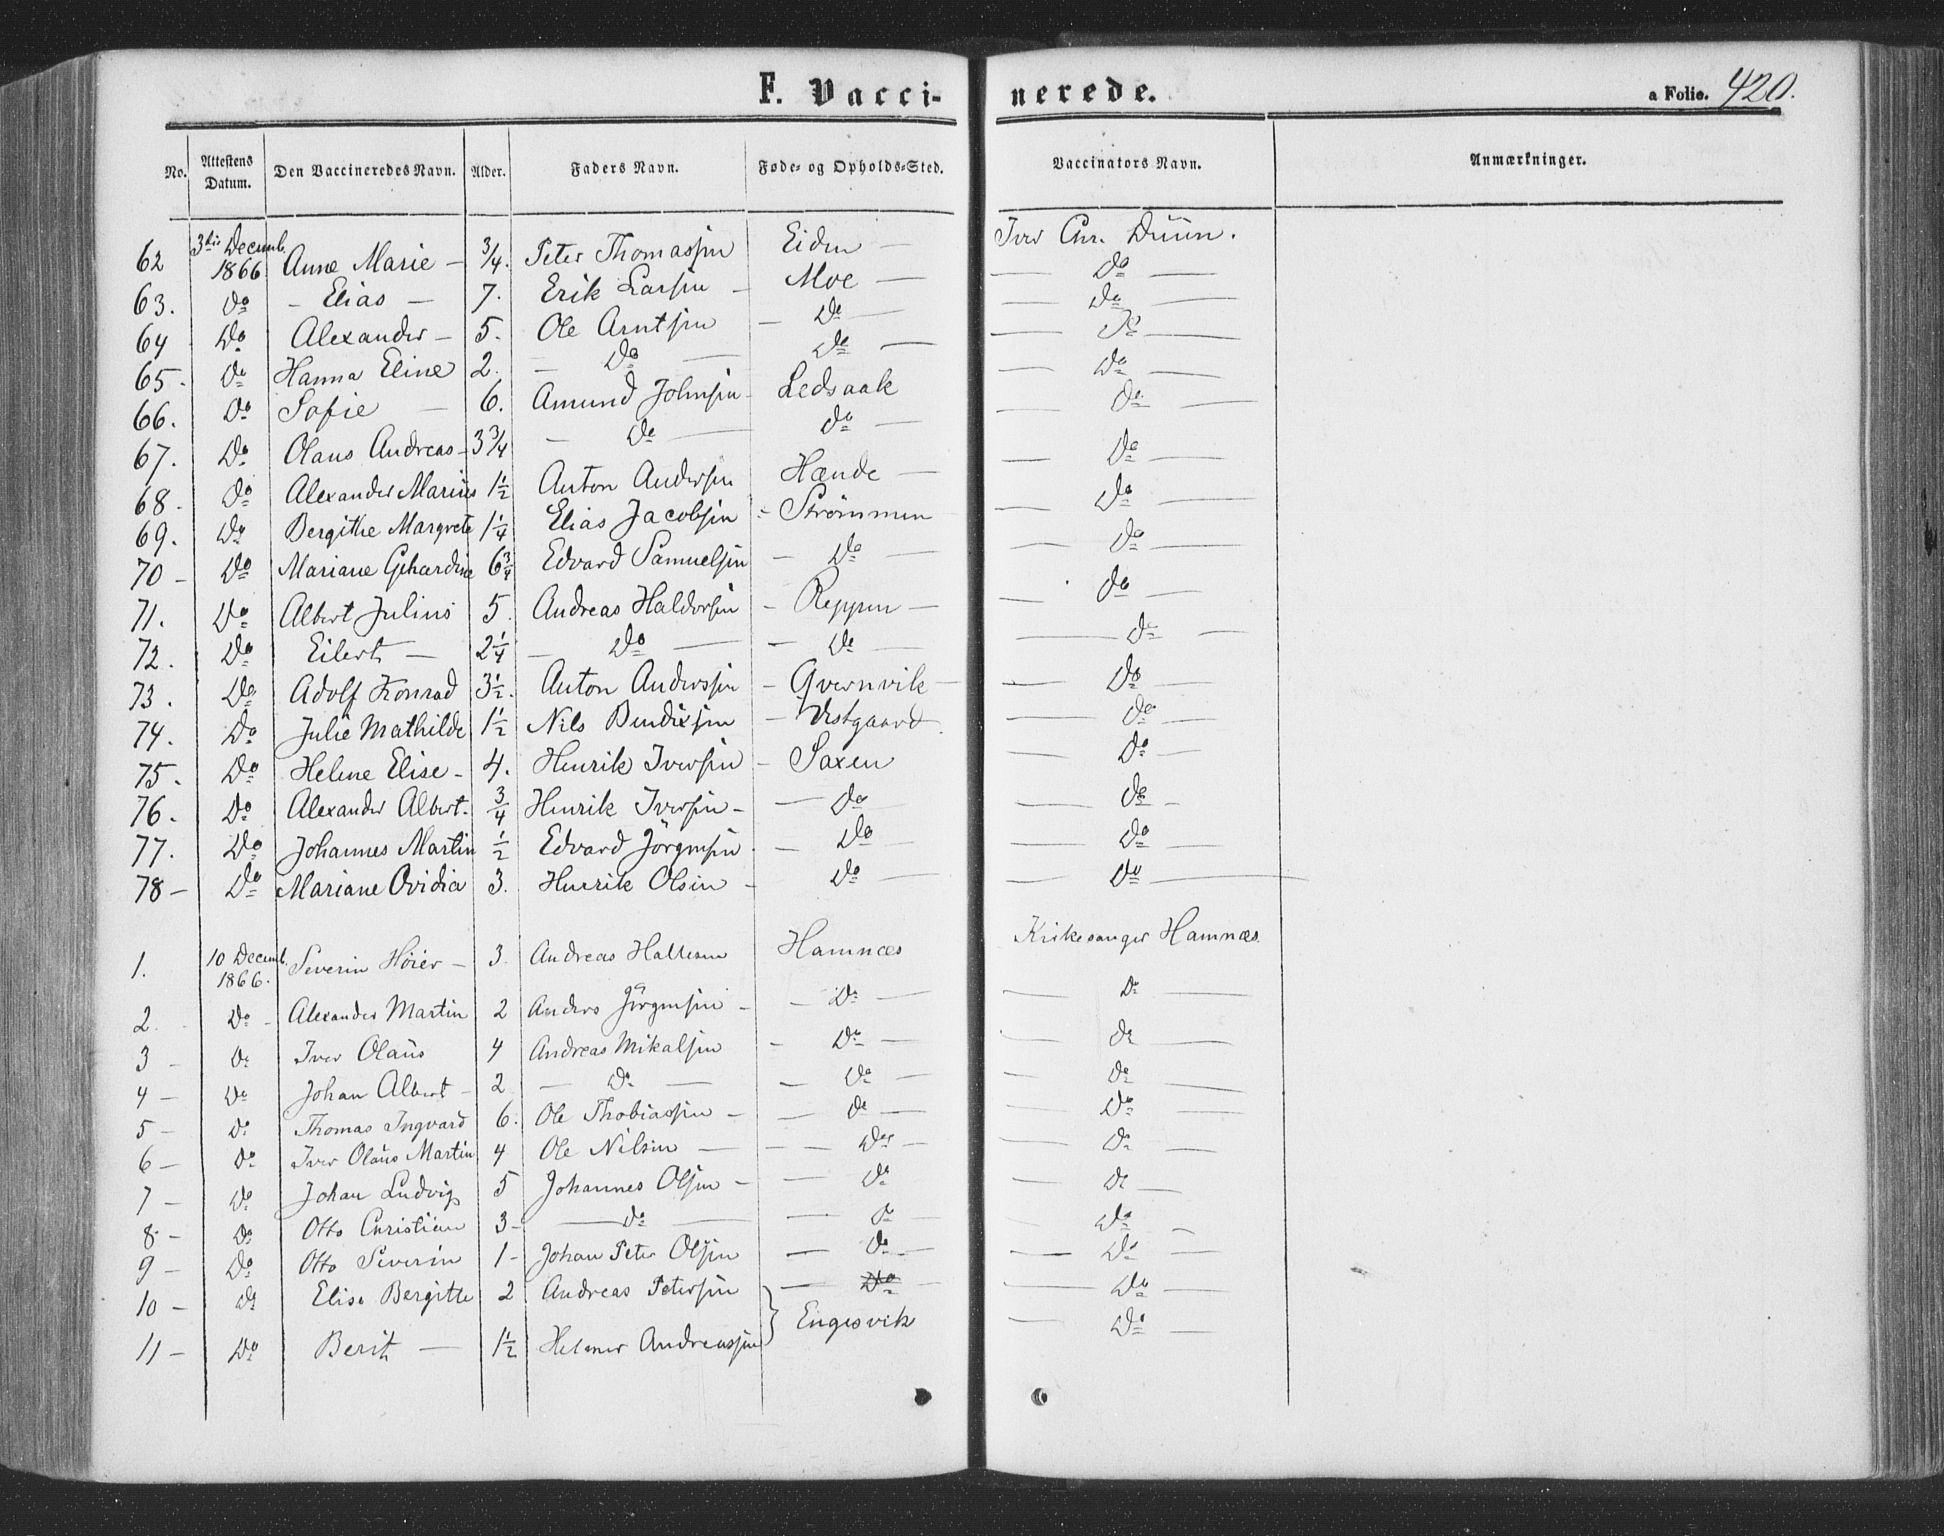 F. Vaccinerede.
a Folio. 420.
No. Attestens Datum. Den Vaccineredes Navn. Alder. Faders Navn. Føde- og Opholds-Sted. Vaccinators Navn. Anmærkninger.
62 3die Decemb. 1866 Anne Marie - 3/4. Peter Thomassen Eiden - Iver Chr. Duun.
63. Do - Elias - 7. Erik Larsen - Moe - Do
64 Do Alexander - 5. Ole Arntsen - Do - Do
65. Do Hanna Eline 2. - Do - Do - Do
66. Do Sofie - 6. Amund Johnsen - Ledsaak Do
67. Do Olaus Andreas - 3 3/4 - Do - Do - Do
68. Do Alexander Marius 1 1/2 Anton Andersen Hænde - Do
69. Do Bergithe Margrete 1 1/4 Elias Jacobsen - Strømmen Do
70 - Do Mariane Gihardine 6 3/4 Edvard Samuelsen - Do - Do
71. Do Albert Julius 5. Andreas Haldorsen - Reppen - Do
72. Do Eilert - 2 1/4 - Do - Do - Do
73. Do Adolf Konrad 3 1/2. Anton Anderssen - Qvernvik - Do
74. Do Julie Mathilde 1 1/2 Nils Bendixsen - Vestgaard Do
75. Do Helene Elise - 4. Henrik Iversen - Saxen Do
76. Do Alexander Albert. 3/4 Henrik Iversen - - Do Do
77. Do Johannes Martin 1/2 Edvard Jörgensen - Do Do
78 - Do Mariane Ovidia 3. Henrik Olsen - Do - Do
1. 10 Decemb. 1866. Severin Höier - 3. Andreas Haltesen Hamnæs Kirkesanger Hamnæs.
2. Do - Alexander Martin 2 Anders Jörgensen - - Do - Do
3 - Do Iver Olaus 4 Andreas Mikalsen - Do - Do
4 - Do Johan Albert - 2 - Do - - Do - Do
5 - Do Thomas Ingvard 6. Ole Thobiassen - - Do - Do
6 - Do Iver Olaus Martin 4 Ole Nilsen - - Do - Do
7 - Do Johan Ludvig 5 Johannes Olsen - - Do Do
8 - Do Otto Christian 3 - - Do - - Do - Do
9 - Do Otto Severin 1 - Johan Peter Olsen - Do - Do
10 - Do Elise Bergitte 2 Andreas Petersen - Do - Do
11 - Do Berit - 1 1/2 Helmer Andreassen } Engesvik Do